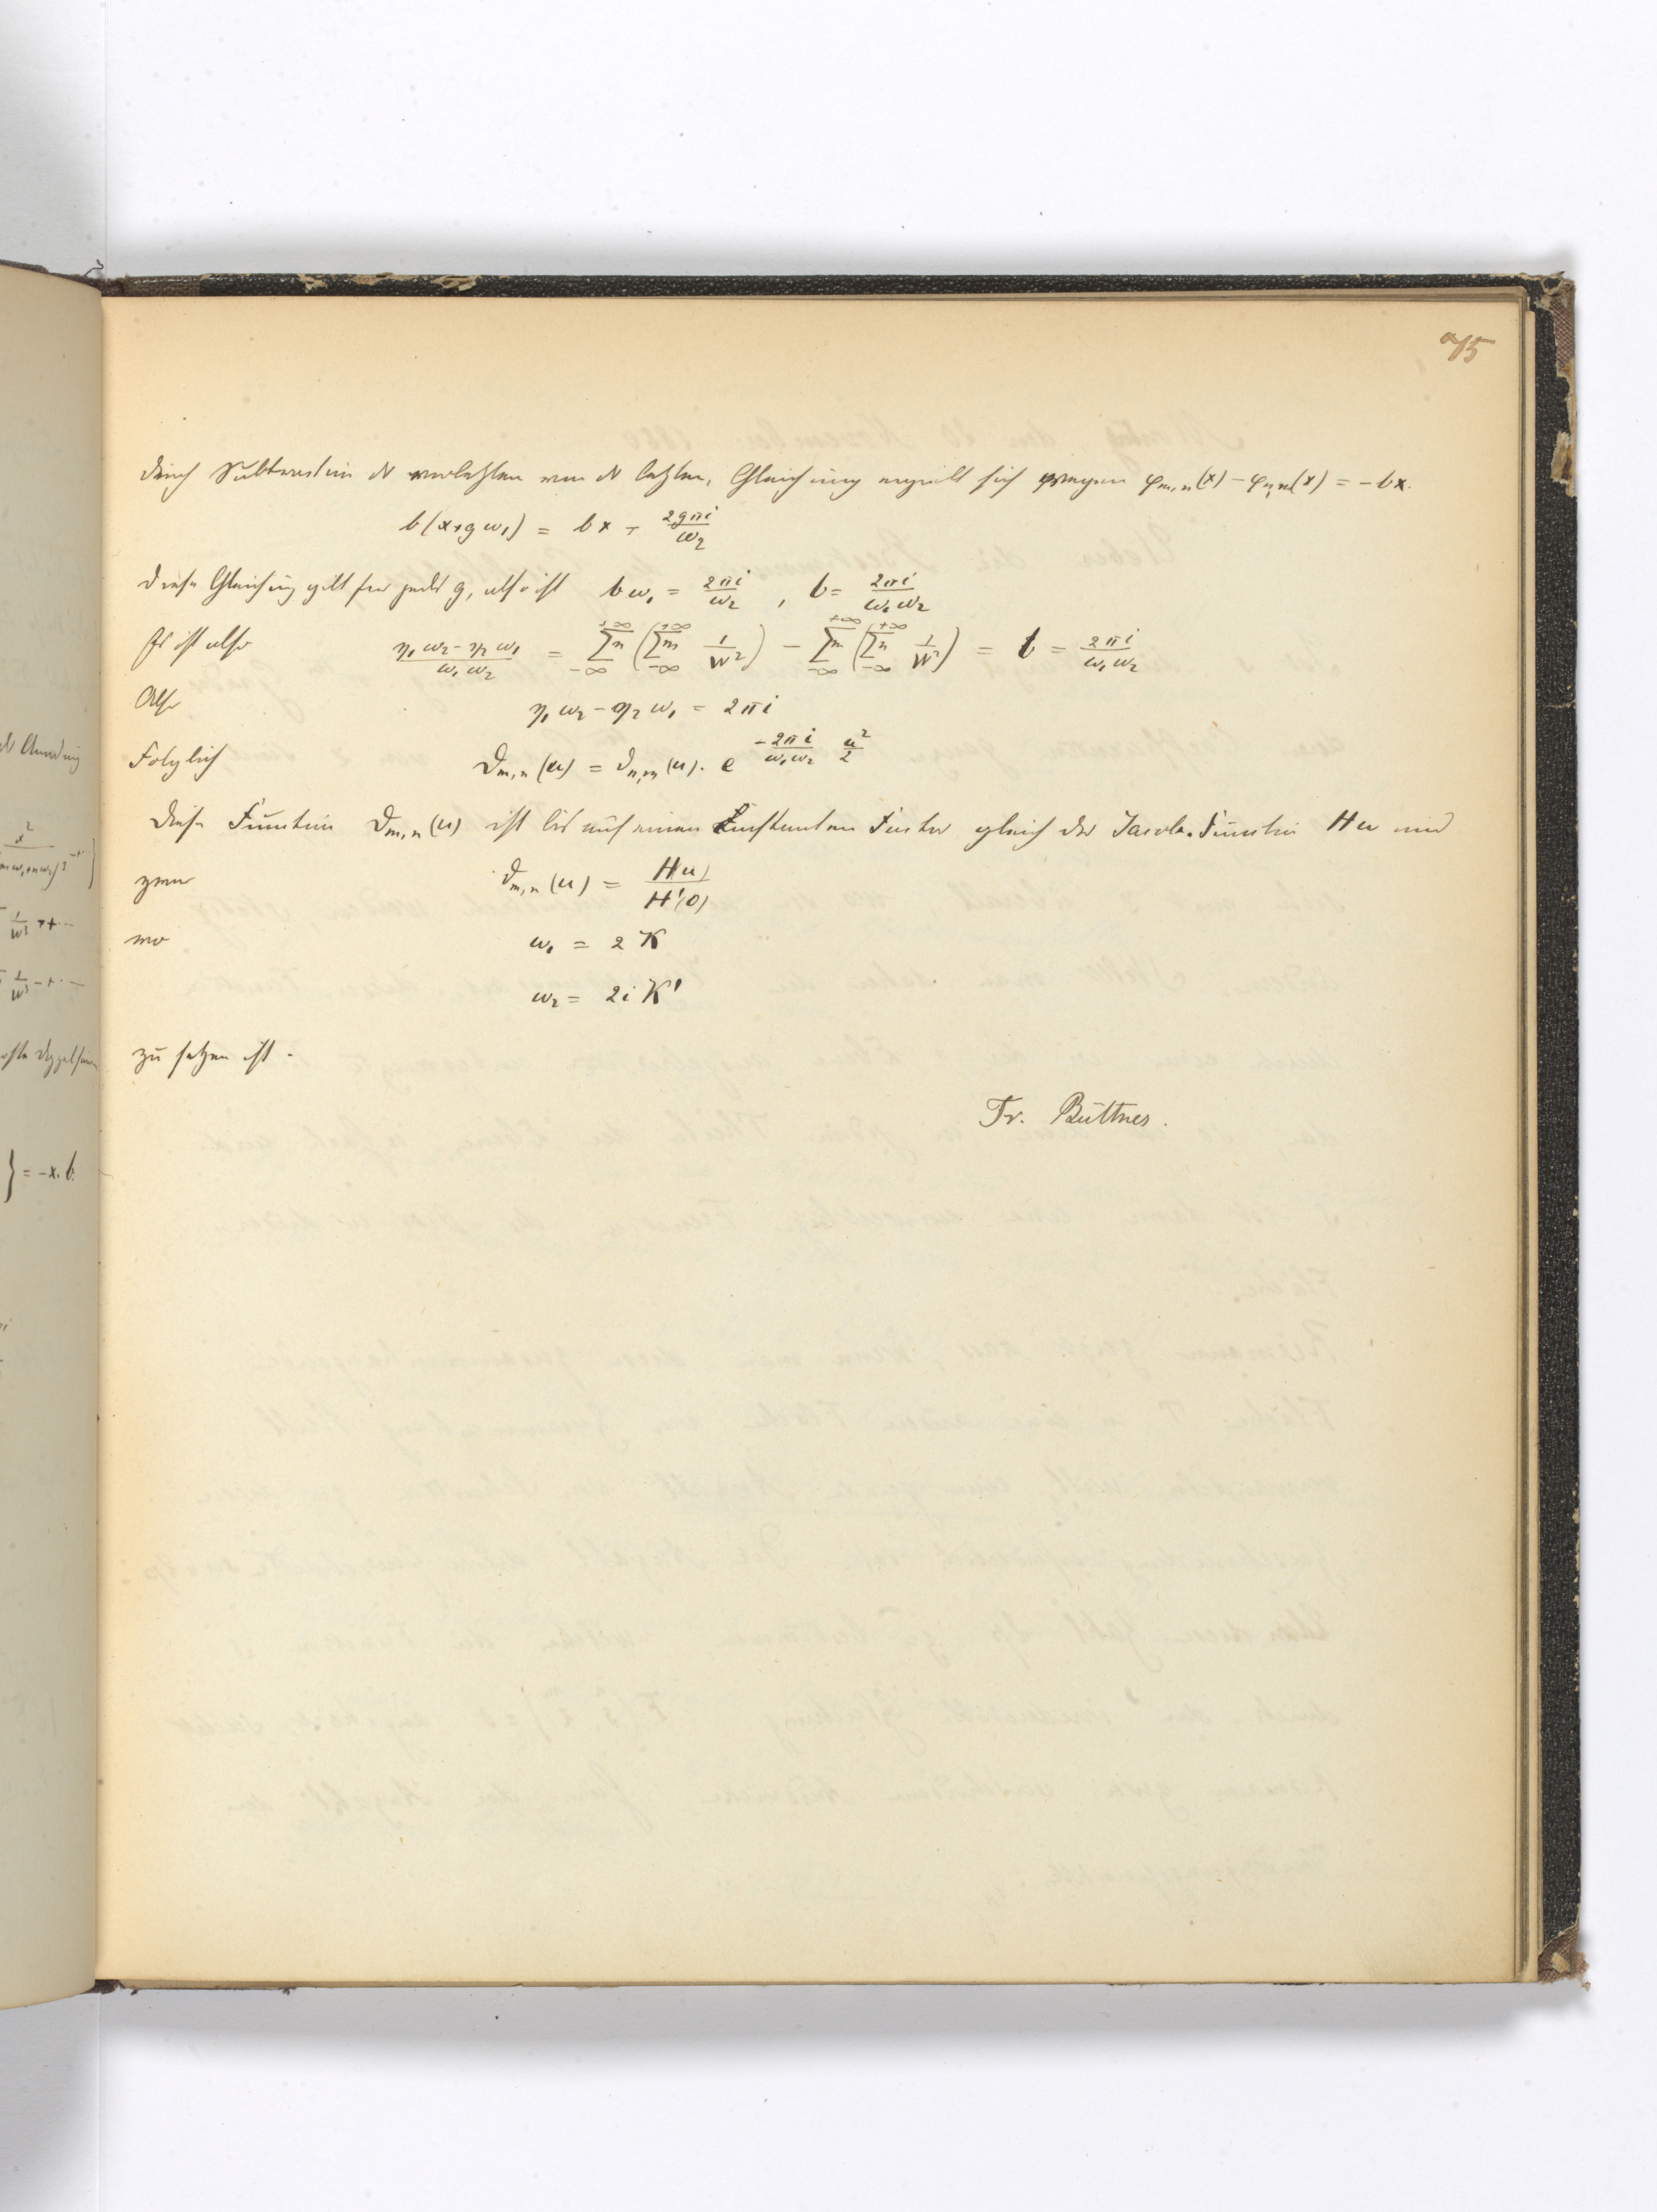 75
Durch Subtraction der vorletzten von der letzten Gleichung ergiebt sich wegen φ_{m,n}(x) − φ_{n,m}(x) = −bx.
b(x+gω₁) = bx + 2gπi/ω₂
Diese Gleichung gilt für jedes g, also ist bω₁ = 2πi/ω₂ , b = 2πi/ω₁ω₂
Es ist also (η₁ω₂ − η₂ω₁)/ω₁ω₂ = Σn_{−∞}^{+∞} (Σm_{−∞}^{+∞} 1/w²) − Σm_{−∞}^{+∞} (Σn_{−∞}^{+∞} 1/w²) = b = 2πi/ω₁ω₂
Also η₁ω₂ − η₂ω₁ = 2πi
Folglich ϑ_{m,n}(u) = ϑ_{n,m}(u). e^{−2πi/ω₁ω₂ u²/2}
Diese Function ϑ_{m,n}(u) ist bis auf einen Constanten Factor gleich der Jacob. Function Hu und
zwar ϑ_{m,n}(u) = H(u)/H'(0)
wo ω₁ = 2K
ω₂ = 2iK'
zu setzen ist.
Fr. Büttner.
} = −x.b.